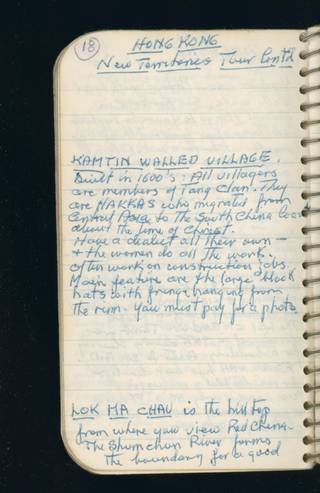 18
HONG KONG
New Territories Tour Cont'd
KAMTIN WALLED VILLAGE.
Built in 1600's. All villagers
are members of Tang Clan. They
are HAKKAS who migrated from
Central Asia to the South China Coast
about the time of Christ.
Have a dialect all their own -
+ the women do all the work.
Often work on construction jobs.
Main feature are the large black
hats with fringe hanging from
the rim. You must pay for a photo
LOK MA CHAU is the hill top
from where you view Red China.
The Shumchun River forms
the boundary for a good